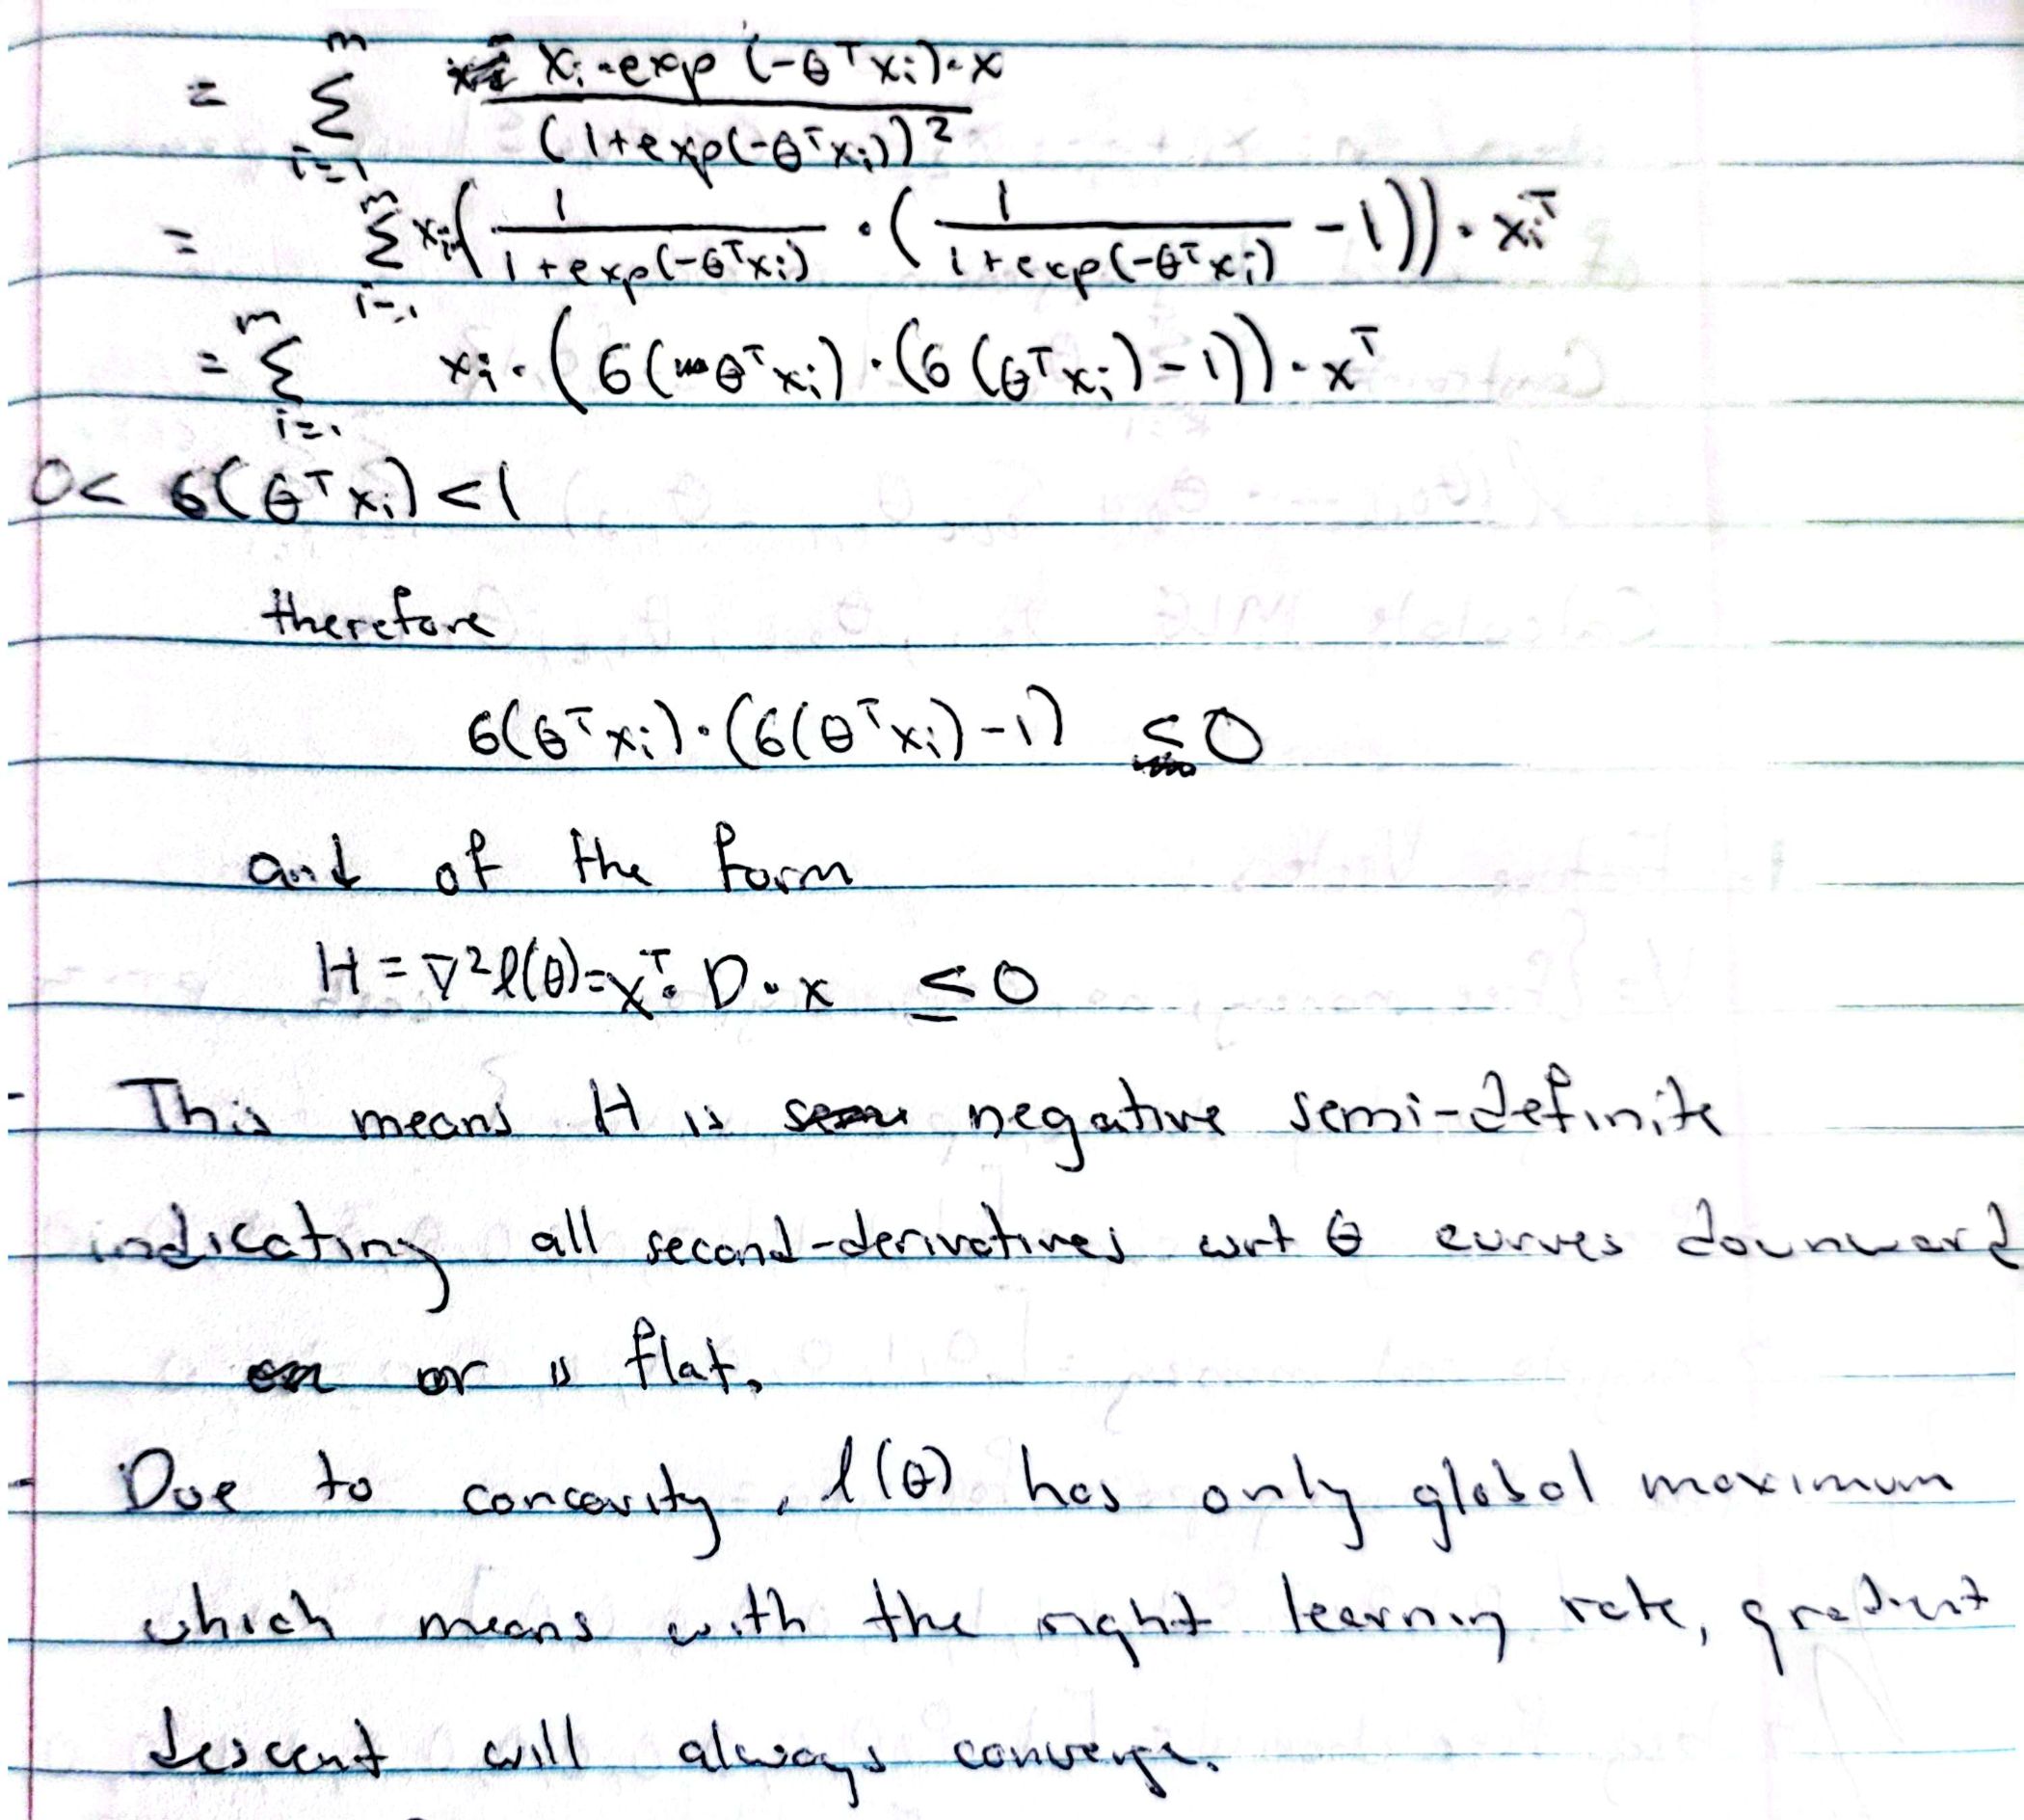 = Σ_{i=1}^{m} x_i · exp(-θ^T x_i) · x / (1+exp(-θ^T x_i))^2
= Σ_{i=1}^{m} x_i (1/(1+exp(-θ^T x_i)) · (1/(1+exp(-θ^T x_i)) - 1)) · x_i^T
= Σ_{i=1}^{m} x_i · (σ(θ^T x_i) · (σ(θ^T x_i) - 1)) · x^T
0 < σ(θ^T x_i) < 1
therefore
σ(θ^T x_i) · (σ(θ^T x_i) - 1) ≤ 0
and of the form
H = ∇²l(θ) = x^T · D · x ≤ 0
- This means H is negative semi-definite
indicating all second-derivatives wrt θ curves downward
or is flat.
- Due to concavity, l(θ) has only global maximum
which means with the right learning rate, gradient
descent will always converge.